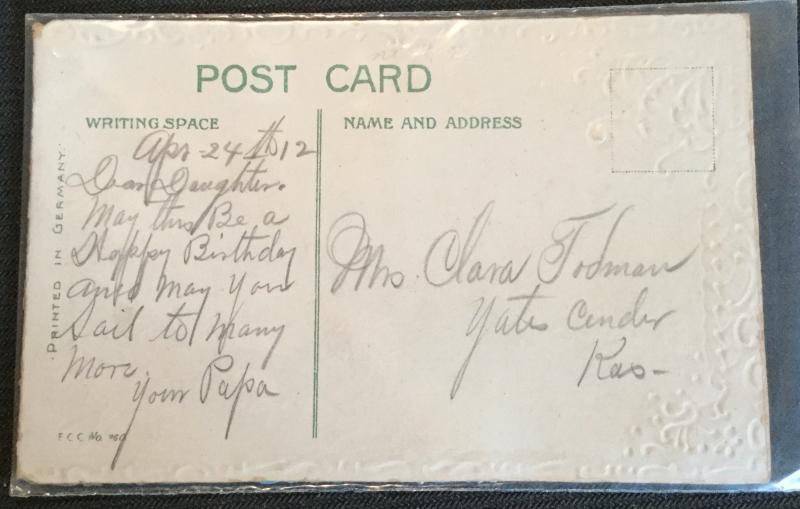 POST CARD
WRITING SPACE
NAME AND ADDRESS
PRINTED IN GERMANY.
Apr 24th 12
Dear Daughter.
May this Be a
Happy Birthday
and May You
Sail to Many
More.
Your Papa
Mrs. Clara Todman
Yates Cender
Kas-
F.C.C. No.